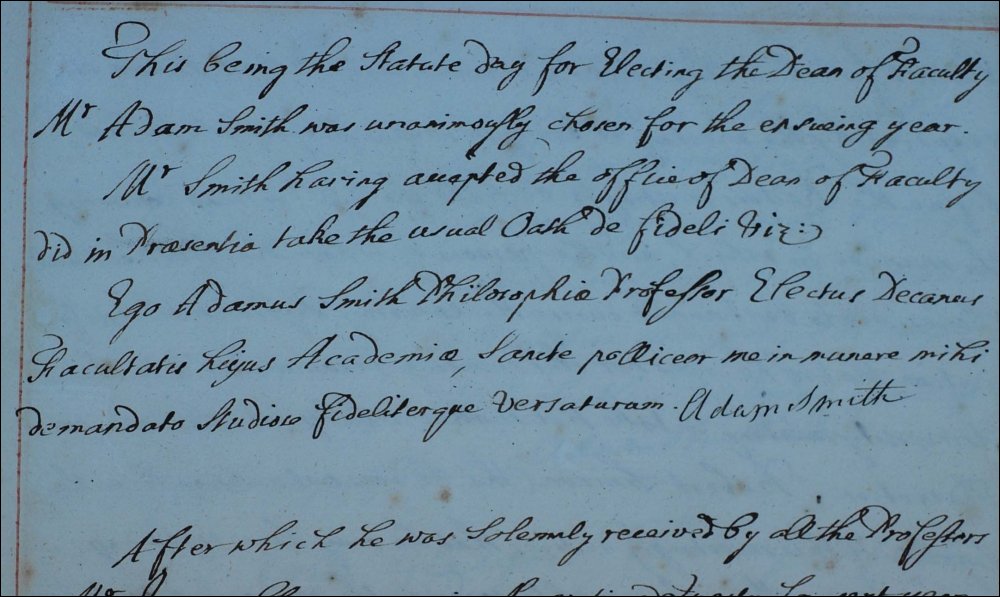 This being the Statute day for Electing the Dean of Faculty
Mr Adam Smith was unanimously chosen for the ensueing year.
Mr Smith having accepted the office of Dean of Faculty
did in Præsentia take the usual Oath de fideli Viz:
Ego Adamus Smith Philosophiæ Professor Electus Decanus
Facultatis hujus Academiæ, Sancte polliceor me in munere mihi
demandato Studiose fideliterque Versaturum. Adam Smith
After which he was Solemnly received by all the Professors
Mr